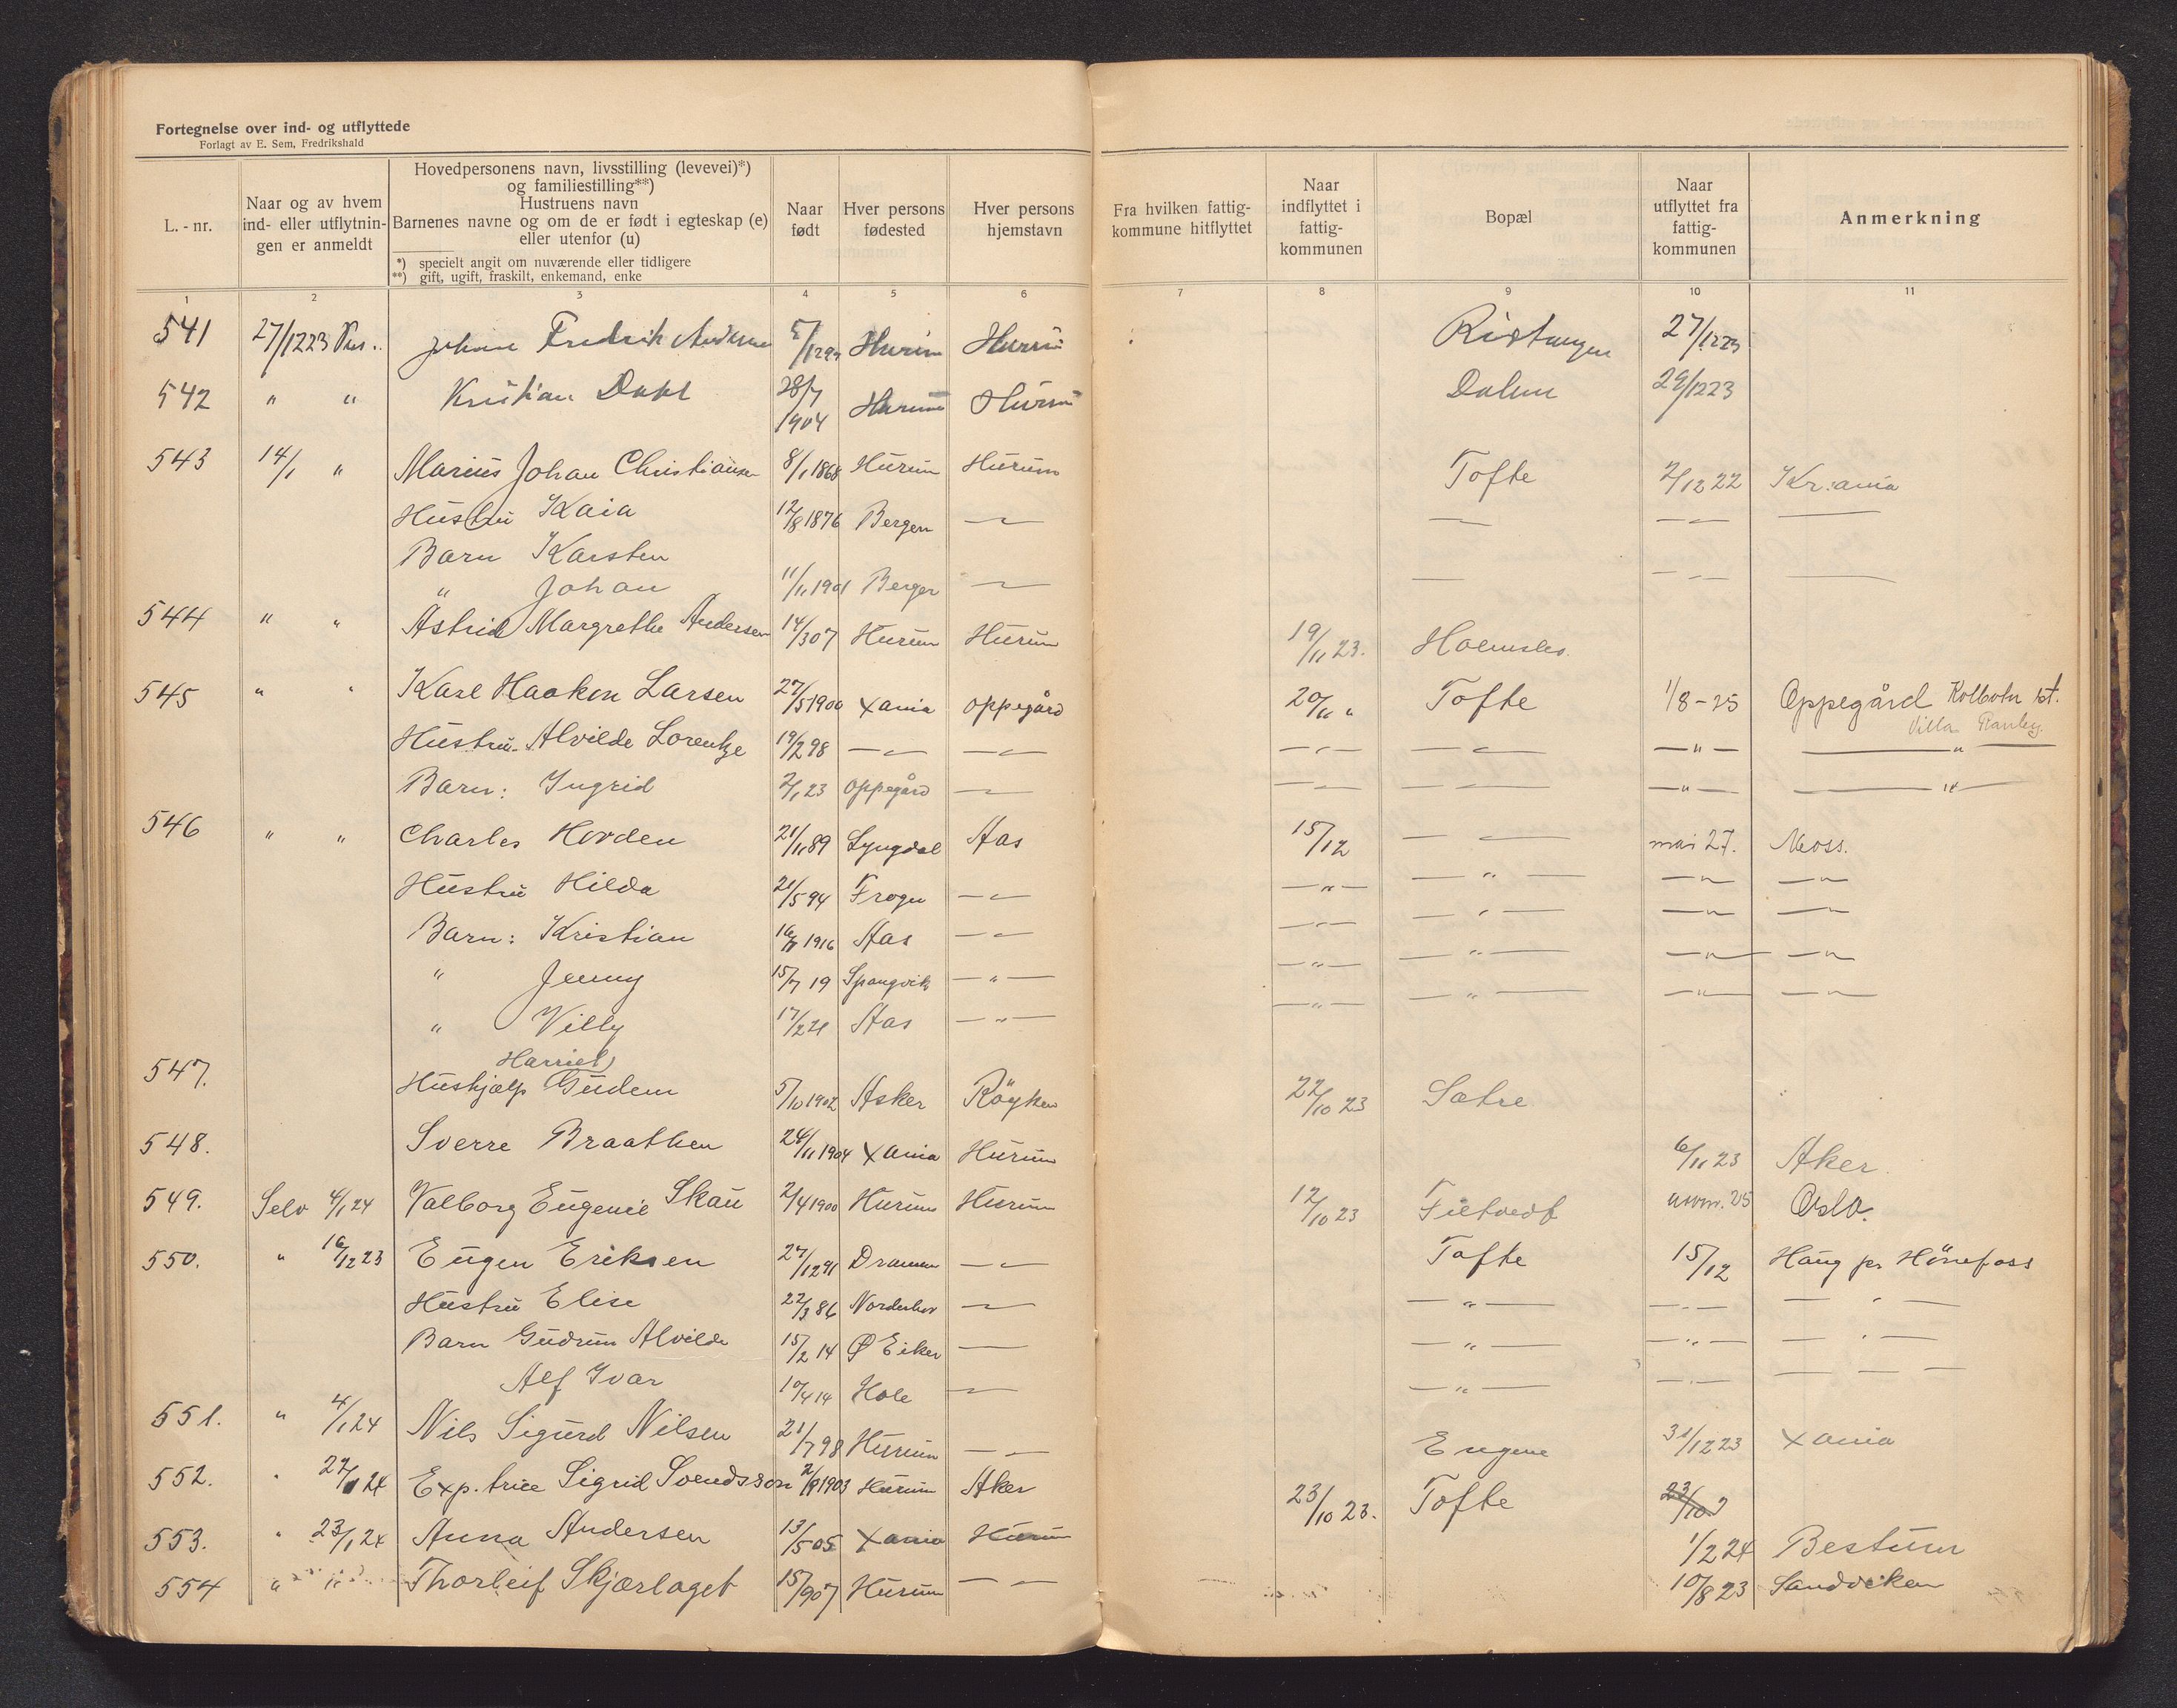 Fortegnelse over ind- og utflyttede
Forlagt av E. Sem, Fredrikshald
L. - nr.
Naar og av hvem ind- eller utflytnin- gen er anmeldt
Hovedpersonens navn, livsstilling (levevei)*)
og familiestilling**)
Hustruens navn
Barnenes navne og om de er født i egteskap (e)
eller utenfor (u)
*) specielt angit om nuværende eller tidligere
**) gift, ugift, fraskilt, enkemand, enke
Naar født
Hver persons fødested
Hver persons hjemstavn
Fra hvilken fattig- kommune hitflyttet
Naar indflyttet i fattig- kommunen
Bopæl
Naar utflyttet fra fattig- kommunen
Anmerkning
1 2 3 4 5 6 7 8 9 10 11
541 27/12 23 Johan Fredrik Andersen Hurum Hurum 27/12 23
542 " " Kristian Dahl 28/7 1904 Hurum Hurum Dalen 29/12 23
543 14/1 " Marius Johan Christiansen 8/1 1868 Hurum Hurum Tofte 2/12 22 Kr.ania
Hustru Kaia 12/8 1876 Bergen — — — —
Barn Karsten
" Johan 11/1 1901 Berger — — — —
544 " " Astrid Margrethe Andersen 14/3 07 Hurum Hurum 19/11 23. Holmsbo.
545 " " Karl Haakon Larsen 27/5 1900 Xania Oppegård 20/11 " Tofte 1/8-25 Oppegård Kolbotn st.
Villa
Hustru Alvilde Lorentze 19/2 98 — — — — — " — — " —
Barn: Ingrid 2/1 23 Oppegård — — — — " — — " —
546 " " Charles Hovden 21/11 89 Lyngdal Aas 15/12 — mai 27. Moss.
Hustru Hilda 21/5 94 Frogn — — " — — " — — " — — " —
Barn: Kristian 16/8 1916 Aas — — " — — " — — " — — " —
" Jenny 15/7 19 Spangvik — " — — " — — " — — " — — " —
" Villy 17/2 21 Aas — " — — " — — " — — " — — " —
Harriet
547. Hushjælp Gudem 5/10 1902 Asker Röyken 22/10 23 Sætre
548. Sverre Braathen 24/11 1904 Xania Hurum 6/11 23 Aker.
549. Selv 4/1 24 Valborg Eugenie Skau 2/4 1900 Hurum Hurum 12/10 23 Filtvedt novm. 25 Oslo.
550. " 16/12 23 Eugen Eriksen 27/12 91 Drammen — Tofte 15/12 Haug pr Hönefoss
Hustru Elise 22/3 86 Norderhov — — " — — " — — " —
Barn Gudrun Alvilde 15/2 14 Ø Eiker — — " — — " — — " —
Alf Ivar 10/4 14 Hole — — " — — " — — —
551. " 4/1 24 Nils Sigurd Nilsen 21/7 98 Hurum — " — Engene 31/12 23 Xania
552. " 22/1 24 Exp.trice Sigrid Svendsson 2/9 1903 Hurum Aker 23/10 23. Tofte 23/10
553. " 23/1 24 Anna Andersen 13/5 05 Xania Hurum 1/2 24 Bestum
554 " " Thorleif Skjærlaget 15/9 07 Hurum — — 10/8 23 Sandviken